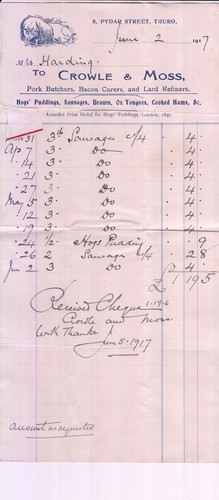 8, PYDAR STREET, TRURO,
June 2 1917
Mrs Harding.
TO CROWLE & MOSS,
Pork Butchers, Bacon Curers, and Lard Refiners.
Hogs' Puddings, Sausages, Brawn, Ox Tongues, Cooked Hams, &c.
Awarded First Medal for Hogs' Puddings, London, 1897.
31 3lb Sausages 1/4 4
Ap 7 3 Do 4
14 3 Do 4
21 3 Do 4
27 3 Do 4
May 5 3 Do 4
12 3 Do 4
19 3 Do 4
24 1/2 Hogs Pudding 9
26 2 Sausages 1/4 2 8
Jun 2 3 Do 4
£ 1 19 5
Received Cheque 1-19-6
Crowle and Moss
With Thanks
Jun 5-1917
amount as requested